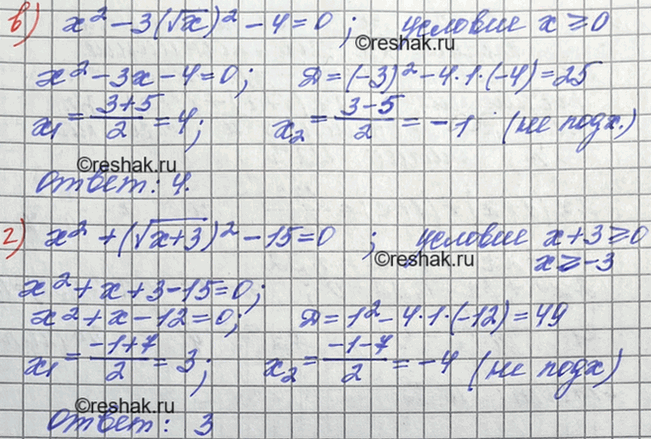 в) x² - 3(√x)² - 4 = 0 ; условие x ≥ 0
x² - 3x - 4 = 0 ; Д = (-3)² - 4·1·(-4) = 25
x₁ = (3+5)/2 = 4 ; x₂ = (3-5)/2 = -1 (не подх.)
©reshak.ru ©reshak.ru
ответ: 4.
г) x² + (√(x+3))² - 15 = 0 ; условие x+3 ≥ 0
©reshak.ru x ≥ -3
x² + x + 3 - 15 = 0 ;
x² + x - 12 = 0 ; Д = 1² - 4·1·(-12) = 49
x₁ = (-1+7)/2 = 3 ; x₂ = (-1-7)/2 = -4 (не подх)
©reshak.ru
ответ: 3